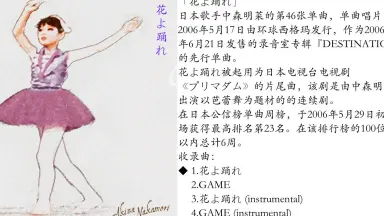 花よ踊れ
「花よ踊れ」
日本歌手中森明菜的第46张单曲,单曲唱片
2006年5月17日由环球西格玛发行,作为2006
年6月21日发售的录音室专辑『DESTINATION
的先行单曲。
花よ踊れ被起用为日本电视台电视剧
《プリマダム》的片尾曲,该剧是由中森明
出演以芭蕾舞为题材的的连续剧。
在日本公信榜单曲周榜,于2006年5月29日初
场获得最高排名第23名。在该排行榜的100位
以内总计6周。
收录曲:
◆ 1.花よ踊れ
2.GAME
3.花よ踊れ (instrumental)
4.GAME (instrumental)
Akina Nakamori